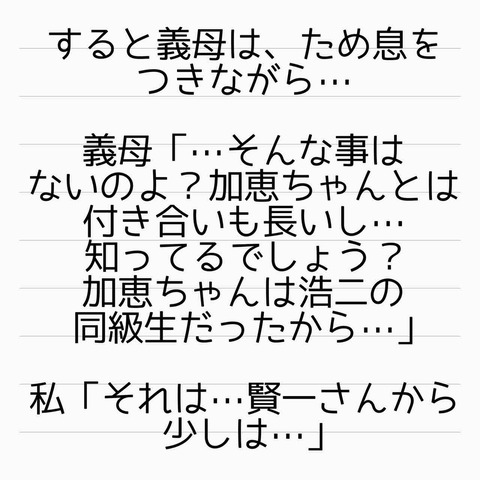 すると義母は、ため息を
つきながら…
義母「…そんな事は
ないのよ？加恵ちゃんとは
付き合いも長いし…
知ってるでしょう？
加恵ちゃんは浩二の
同級生だったから…」
私「それは…賢一さんから
少しは…」